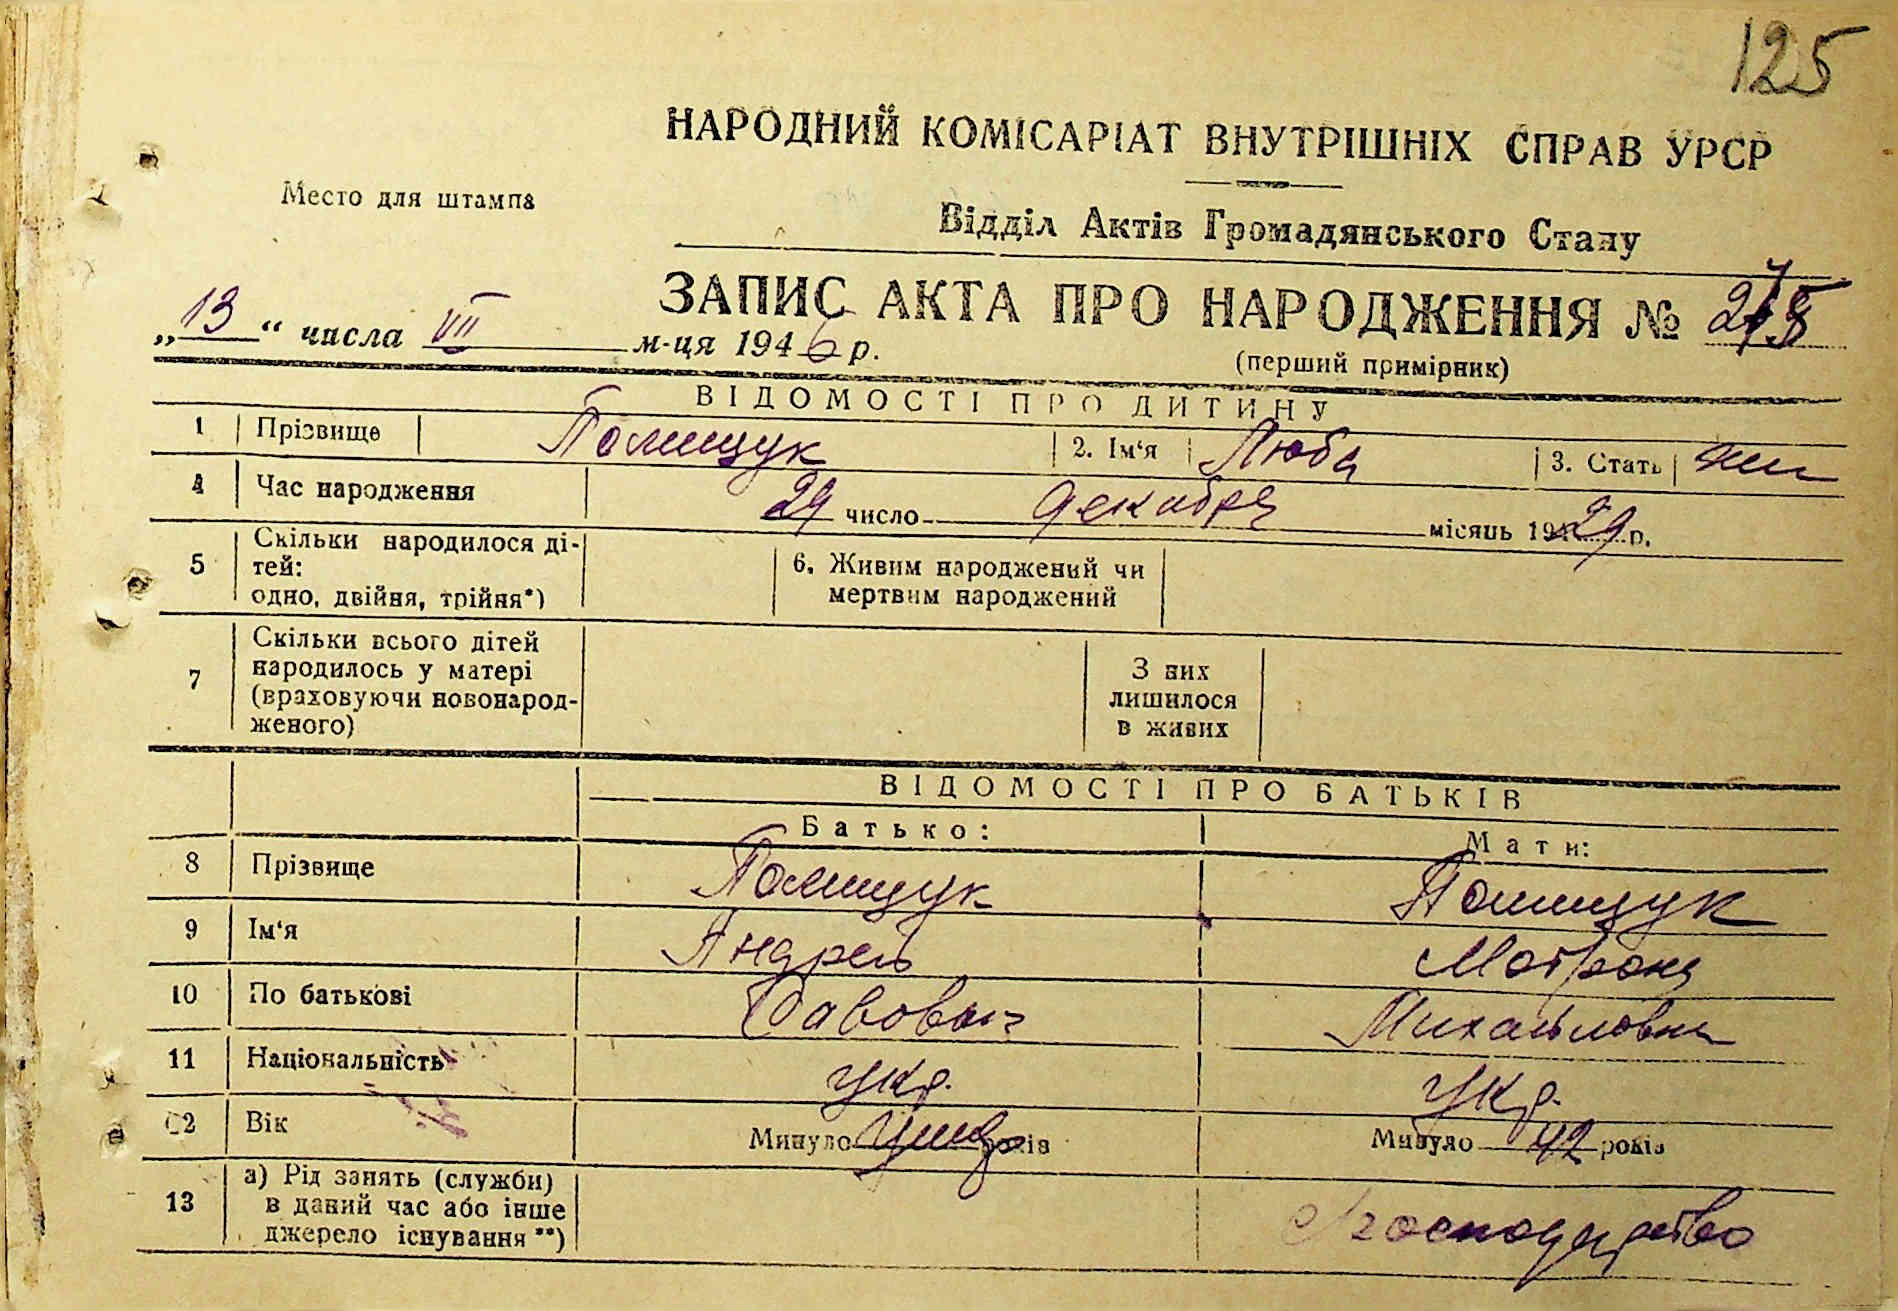 125
НАРОДНИЙ КОМІСАРІАТ ВНУТРІШНІХ СПРАВ УРСР
Место для штампа
Відділ Актів Громадянського Стану
ЗАПИС АКТА ПРО НАРОДЖЕННЯ №
„13“ числа VII м-ця 1946 р.
(перший примірник)
ВІДОМОСТІ ПРО ДИТИНУ
1 Прізвище Полищук 2. Ім‘я Люба 3. Стать жен
4 Час народження 29 число декабря місяць 1929 р.
5 Скільки народилося ді-
тей:
одно, двійня, трійня*)
6. Живим народжений чи
мертвим народжений
7 Скільки всього дітей
народилось у матері
(враховуючи новонарод-
женого)
З них
лишилося
в живих
ВІДОМОСТІ ПРО БАТЬКІВ
Батько: Мати:
8 Прізвище Полищук Полищук
9 Ім‘я Андрей Мотрона
10 По батькові Савович Михайловна
11 Національність укр. укр.
12 Вік Минуло умер років Минуло 42 років
13 а) Рід занять (служби)
в даний час або інше
джерело існування**)